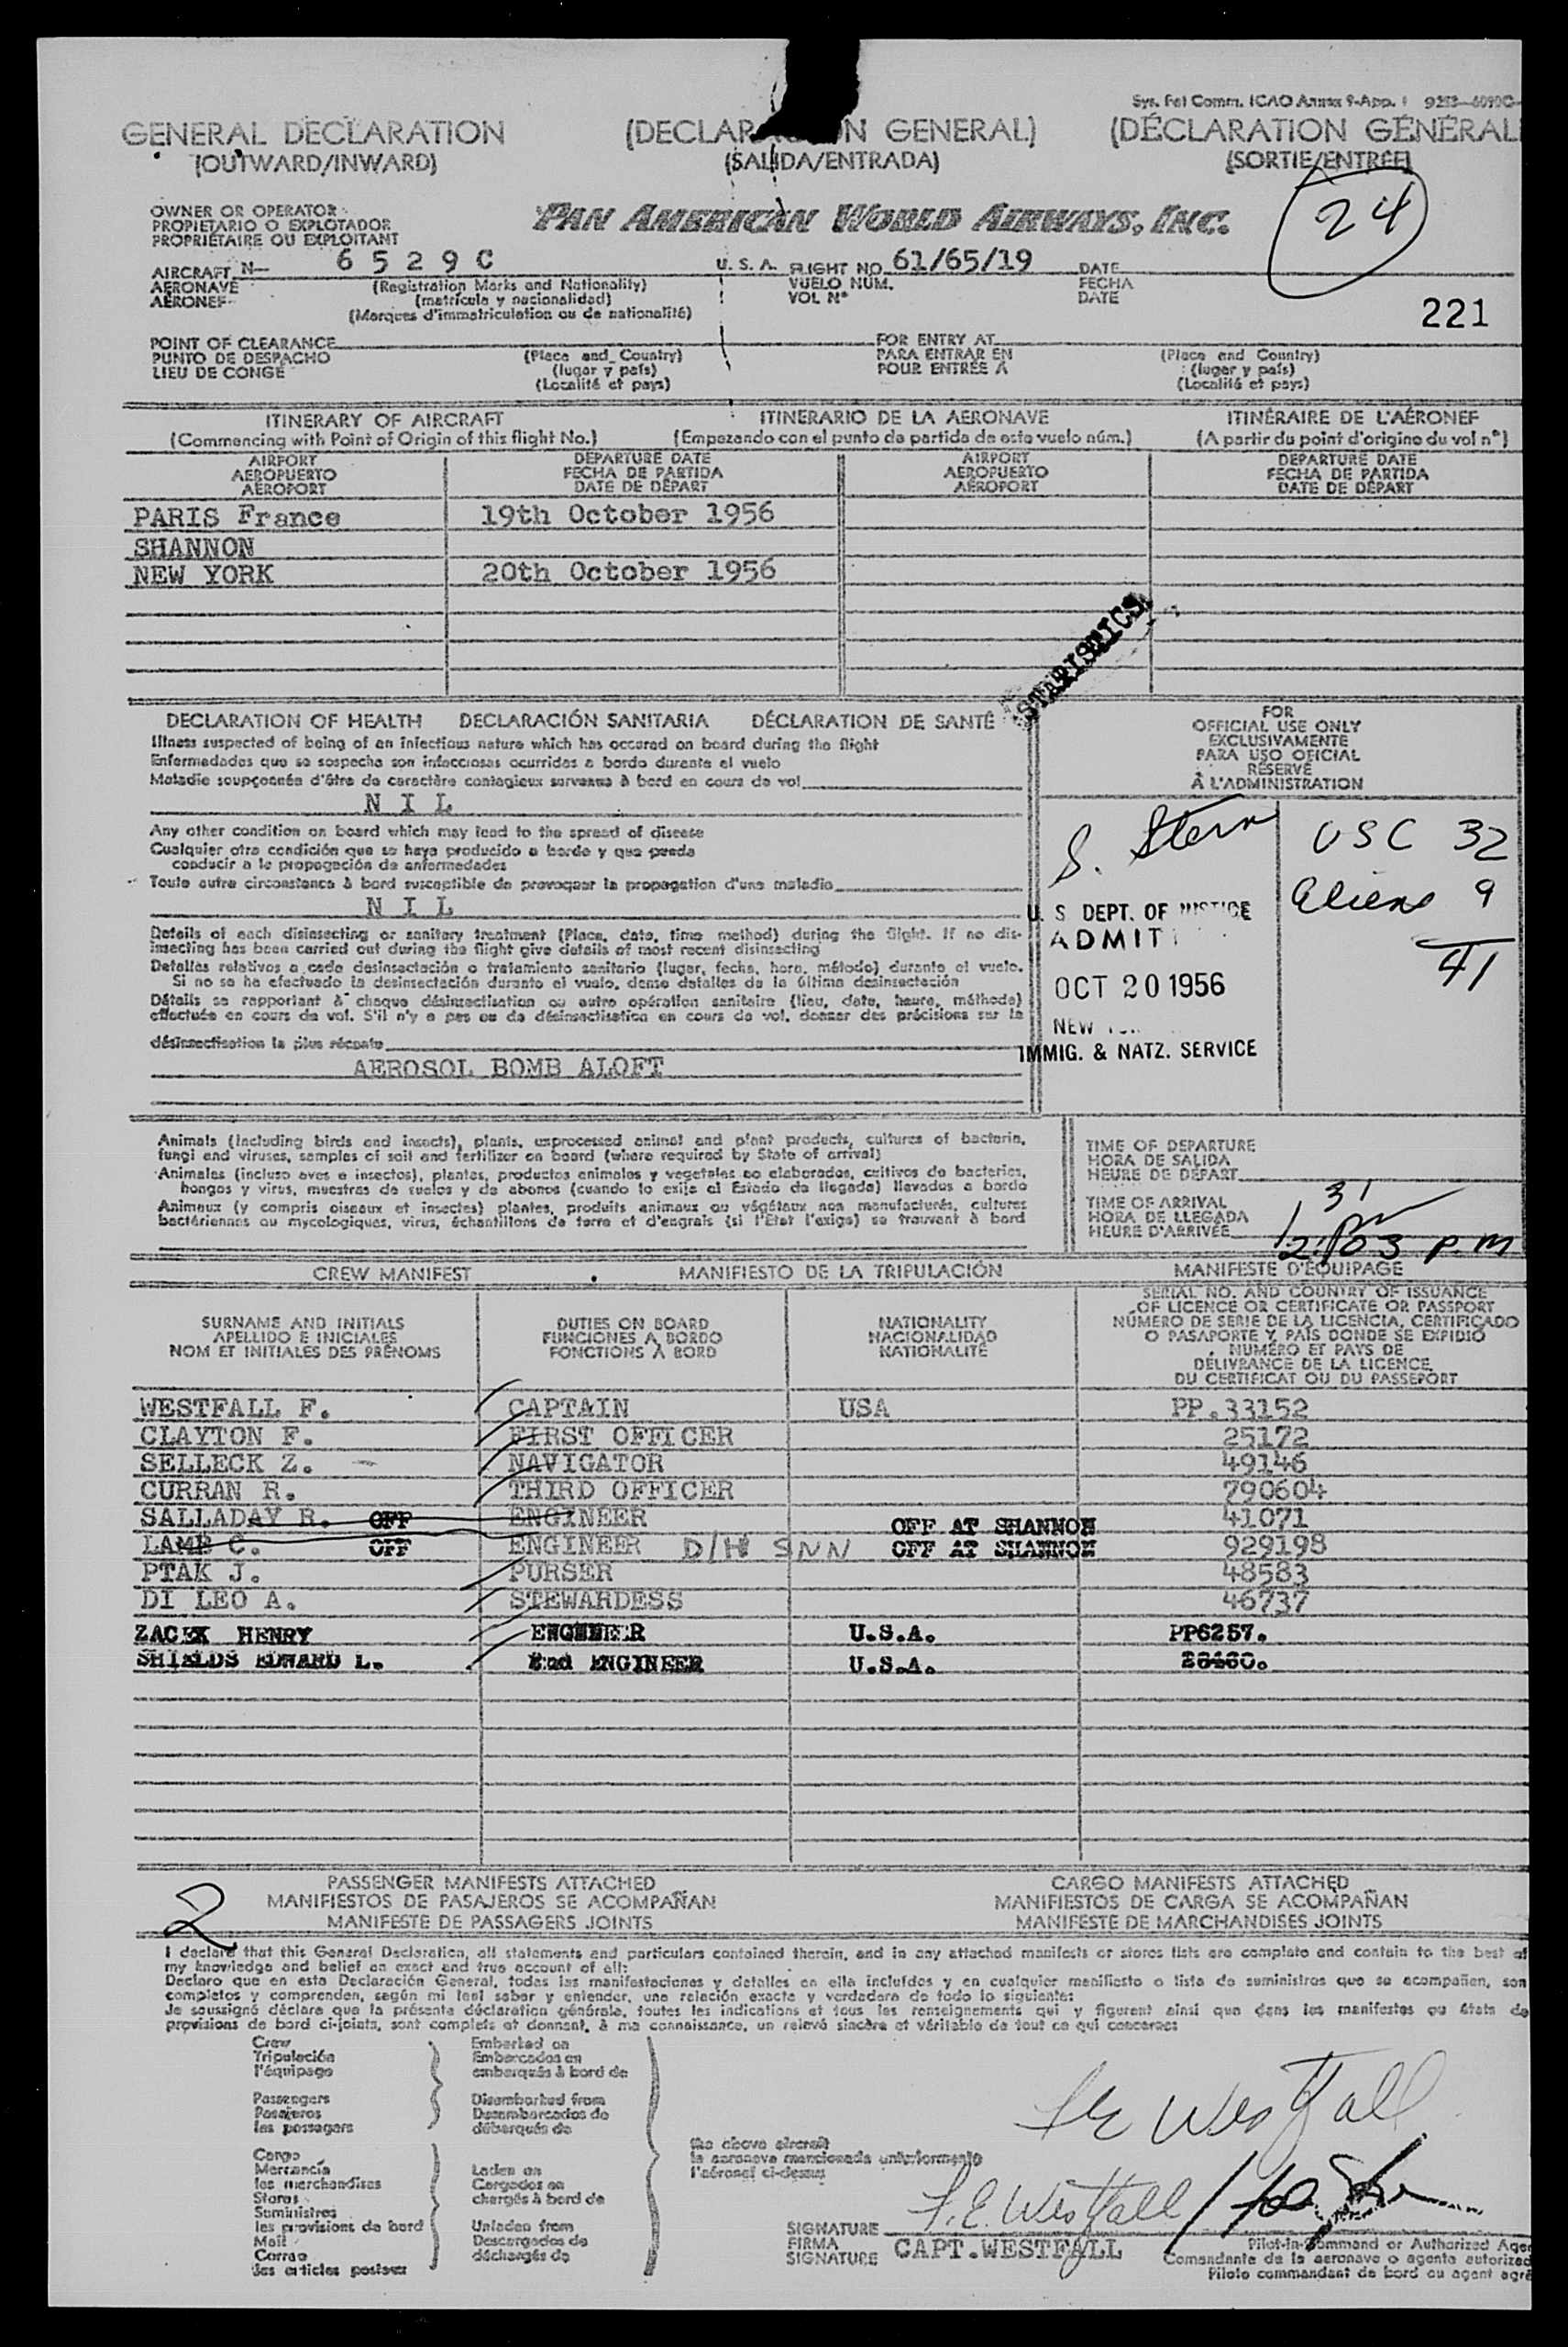 Sys. Fel Comm. ICAO Annex 9-App. I
GENERAL DECLARATION (DECLAR N GENERAL) (DÉCLARATION GÉNÉRAL
(OUTWARD/INWARD) (SALIDA/ENTRADA) (SORTIE/ENTRÉE)
24
OWNER OR OPERATOR
PROPIETARIO O EXPLOTADOR
PROPRIÉTAIRE OU EXPLOITANT
PAN AMERICAN WORLD AIRWAYS, INC.
AIRCRAFT N- 6529C U. S. A. FLIGHT NO. 61/65/19 DATE
AERONAVE (Registration Marks and Nationality) VUELO NÚM. FECHA
AÉRONEF (matrícula y nacionalidad) VOL N° DATE
(Marques d'immatriculation ou de nationalité)
221
POINT OF CLEARANCE FOR ENTRY AT
PUNTO DE DESPACHO (Place and Country) PARA ENTRAR EN (Place and Country)
LIEU DE CONGÉ (lugar y país) POUR ENTRÉE À (lugar y país)
(Localité et pays) (Localité et pays)
ITINERARY OF AIRCRAFT ITINERARIO DE LA AERONAVE ITINÉRAIRE DE L'AÉRONEF
(Commencing with Point of Origin of this flight No.) (Empezando con el punto de partida de este vuelo núm.) (A partir du point d'origine du vol n°)
AIRPORT DEPARTURE DATE AIRPORT DEPARTURE DATE
AEROPUERTO FECHA DE PARTIDA AEROPUERTO FECHA DE PARTIDA
AÉROPORT DATE DE DÉPART AÉROPORT DATE DE DÉPART
PARIS France 19th October 1956
SHANNON
NEW YORK 20th October 1956
STATISTICS
DECLARATION OF HEALTH DECLARACIÓN SANITARIA DÉCLARATION DE SANTÉ
Illness suspected of being of an infectious nature which has occured on board during the flight
Enfermedades que se sospecha son infecciosas ocurridas a bordo durante el vuelo
Maladie soupçonnée d'être de caractère contagieux survenue à bord en cours de vol
NIL
Any other condition on board which may lead to the spread of disease
Cualquier otra condición que se haya producido a bordo y que pueda
conducir a la propagación de enfermedades
Toute autre circonstance à bord susceptible de provoquer la propagation d'une maladie
NIL
Details of each disinsecting or sanitary treatment (Place, date, time method) during the flight. If no dis-
insecting has been carried out during the flight give details of most recent disinsecting
Detalles relativos a cada desinsectación o tratamiento sanitario (lugar, fecha, hora, método) durante el vuelo.
Si no se ha efectuado la desinsectación durante el vuelo, dense detalles de la última desinsectación
Détails se rapportant à chaque désinsectisation ou autre opération sanitaire (lieu, date, heure, méthode)
effectuée en cours de vol. S'il n'y a pas eu de désinsectisation en cours de vol, donner des précisions sur la
désinsectisation la plus récente
AEROSOL BOMB ALOFT
FOR
OFFICIAL USE ONLY
EXCLUSIVAMENTE
PARA USO OFICIAL
RÉSERVÉ
À L'ADMINISTRATION
S. Stern
USC 32
Aliens 9
41
U. S DEPT. OF JUSTICE
ADMIT
OCT 20 1956
NEW
IMMIG. & NATZ. SERVICE
Animals (Including birds and insects), plants, unprocessed animal and plant products, cultures of bacteria,
fungi and viruses, samples of soil and fertilizer on board (where required by State of arrival)
Animales (incluso aves e insectos), plantas, productos animales y vegetales no elaborados, cultivos de bacterias,
hongos y virus, muestras de suelos y de abonos (cuando lo exija el Estado de llegada) llevados a bordo
Animaux (y compris oiseaux et insectes) plantes, produits animaux ou végétaux non manufacturés, cultures
bactériennes ou mycologiques, virus, échantillons de terre et d'engrais (si l'Etat l'exige) se trouvant à bord
TIME OF DEPARTURE
HORA DE SALIDA
HEURE DE DÉPART
TIME OF ARRIVAL
HORA DE LLEGADA
HEURE D'ARRIVÉE
1 31 pm
2:03 P.M
CREW MANIFEST MANIFIESTO DE LA TRIPULACIÓN MANIFESTE D'ÉQUIPAGE
SURNAME AND INITIALS
APELLIDO E INICIALES
NOM ET INITIALES DES PRÉNOMS
DUTIES ON BOARD
FUNCIONES A BORDO
FONCTIONS À BORD
NATIONALITY
NACIONALIDAD
NATIONALITÉ
SERIAL NO. AND COUNTRY OF ISSUANCE
OF LICENCE OR CERTIFICATE OR PASSPORT
NÚMERO DE SERIE DE LA LICENCIA, CERTIFICADO
O PASAPORTE Y PAÍS DONDE SE EXPIDIÓ
NUMÉRO ET PAYS DE
DÉLIVRANCE DE LA LICENCE,
DU CERTIFICAT OU DU PASSEPORT
WESTFALL F. CAPTAIN USA PP.33152
CLAYTON F. FIRST OFFICER 25172
SELLECK Z. NAVIGATOR 49146
CURRAN R. THIRD OFFICER 790604
SALLADAY R. OFF ENGINEER OFF AT SHANNON 41071
LAMB C. OFF ENGINEER D/H SNN OFF AT SHANNON 929198
PTAK J. PURSER 48583
DI LEO A. STEWARDESS 46737
ZACEK HENRY ENGINEER U.S.A. PP6257.
SHIELDS EDWARD L. 2nd ENGINEER U.S.A. 28460.
2
PASSENGER MANIFESTS ATTACHED CARGO MANIFESTS ATTACHED
MANIFIESTOS DE PASAJEROS SE ACOMPAÑAN MANIFIESTOS DE CARGA SE ACOMPAÑAN
MANIFESTE DE PASSAGERS JOINTS MANIFESTE DE MARCHANDISES JOINTS
I declare that this General Declaration, all statements and particulars contained therein, and in any attached manifests or stores lists are complete and contain to the best of
my knowledge and belief an exact and true account of all:
Declaro que en esta Declaración General, todas las manifestaciones y detalles en ella incluídos y en cualquier manifiesto o lista de suministros que se acompañen, son
completos y comprenden, según mi leal saber y entender, una relación exacta y verdadera de todo lo siguiente:
Je soussigné déclare que la présente déclaration générale, toutes les indications et tous les renseignements qui y figurent ainsi que dans les manifestes ou états de
provisions de bord ci-joints, sont complets et donnent, à ma connaissance, un relevé sincère et véritable de tout ce qui concerne:
Crew
Tripulación
l'équipage
Passengers
Pasajeros
les passagers
Cargo
Mercancía
les merchandises
Stores
Suministros
les provisions de bord
Mail
Correo
des articles postaux
Embarked on
Embarcados en
embarqués à bord de
Disembarked from
Desembarcados de
débarqués de
Laden on
Cargados en
chargés à bord de
Unladen from
Descargados de
déchargés de
the above aircraft
la aeronave mencionada anteriormente
l'aéronef ci-dessus
F E Westfall
F. E. Westfall /
SIGNATURE
FIRMA
SIGNATURE
CAPT.WESTFALL
Pilot-in-Command or Authorized Agen
Comandante de la aeronave o agente autorizad
Pilote commandant de bord ou agent agré